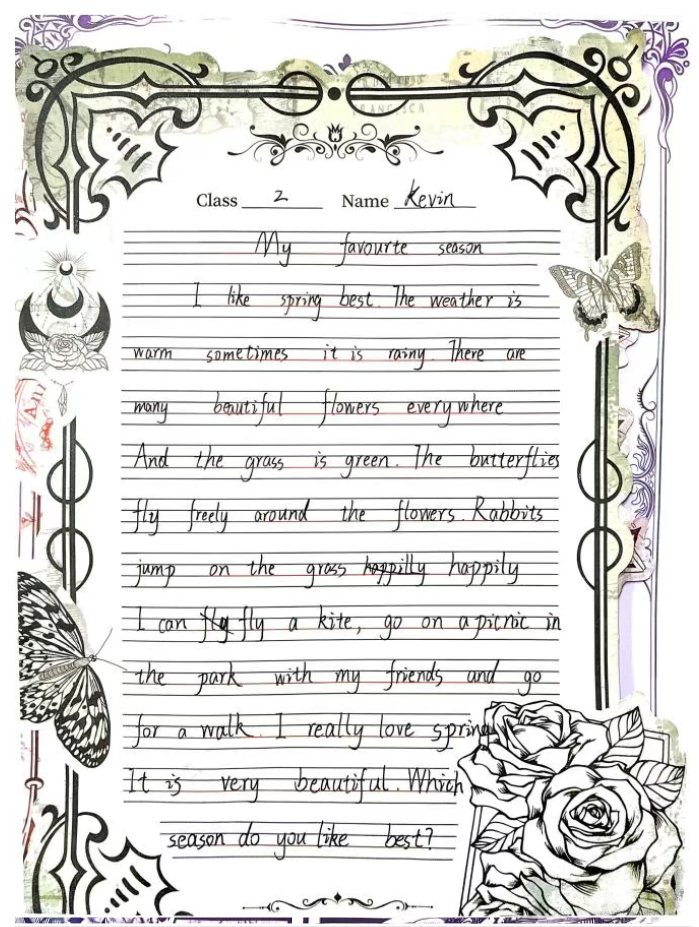 Class 2 Name Kevin
My favourte season
I like spring best. The weather is
warm sometimes it is rainy. There are
many beautiful flowers everywhere
And the grass is green. The butterflies
fly freely around the flowers. Rabbits
jump on the grass happilly happily
I can fly fly a kite, go on a picnic in
the park with my friends and go
for a walk. I really love spring
It is very beautiful. Which
season do you like best?